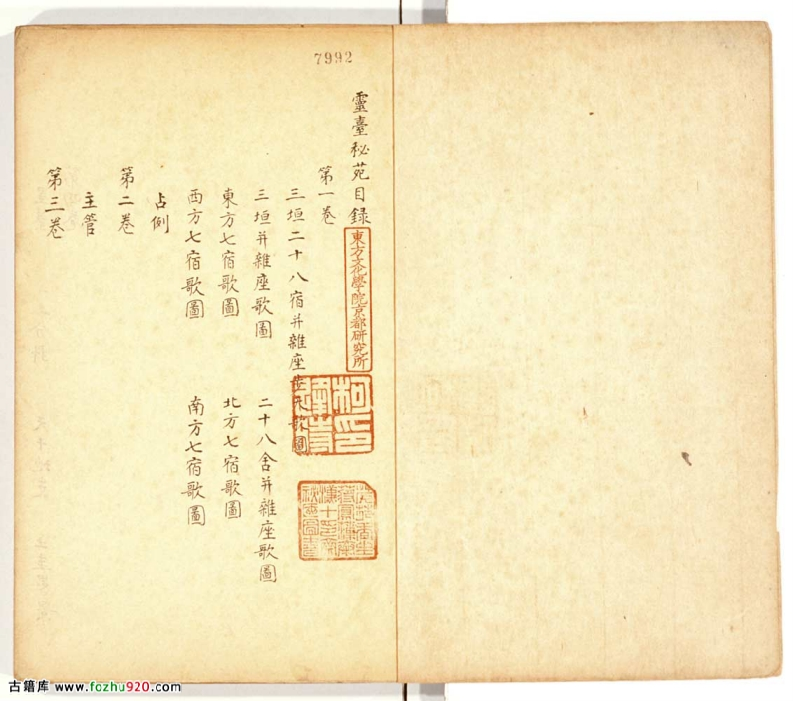 7992
靈臺秘苑目録
東方文化學院京都研究所
第一卷
三垣二十八宿并雜座
三垣并雜座歌圖
二十八舍并雜座歌圖
東方七宿歌圖
北方七宿歌圖
西方七宿歌圖
南方七宿歌圖
占例
第二卷
主管
第三卷
古籍库 www.fozhu920.com